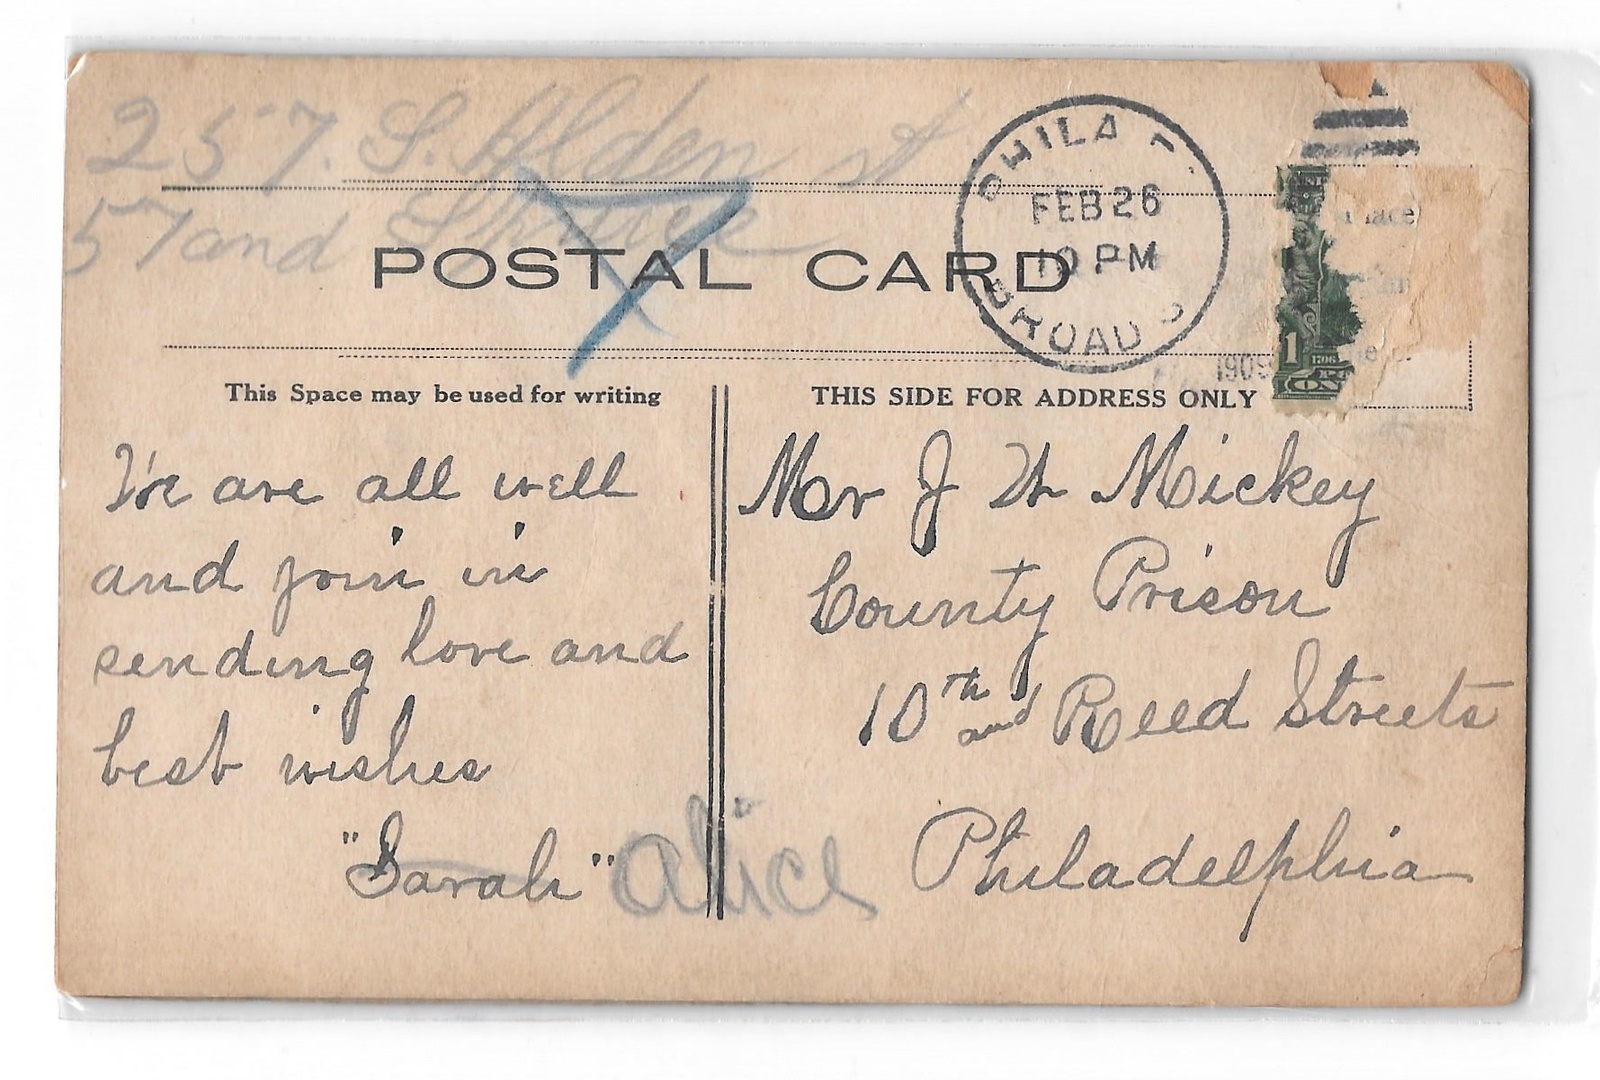 257. S. Alden st
57 and
POSTAL CARD
PHILA
FEB 26
10 PM
BROAD S
1909
1706
1
This Space may be used for writing
THIS SIDE FOR ADDRESS ONLY
We are all well
and join in
sending love and
best wishes
"Sarah" Alice
Mr J W Mickey
County Prison
10th and Reed Streets
Philadelphia